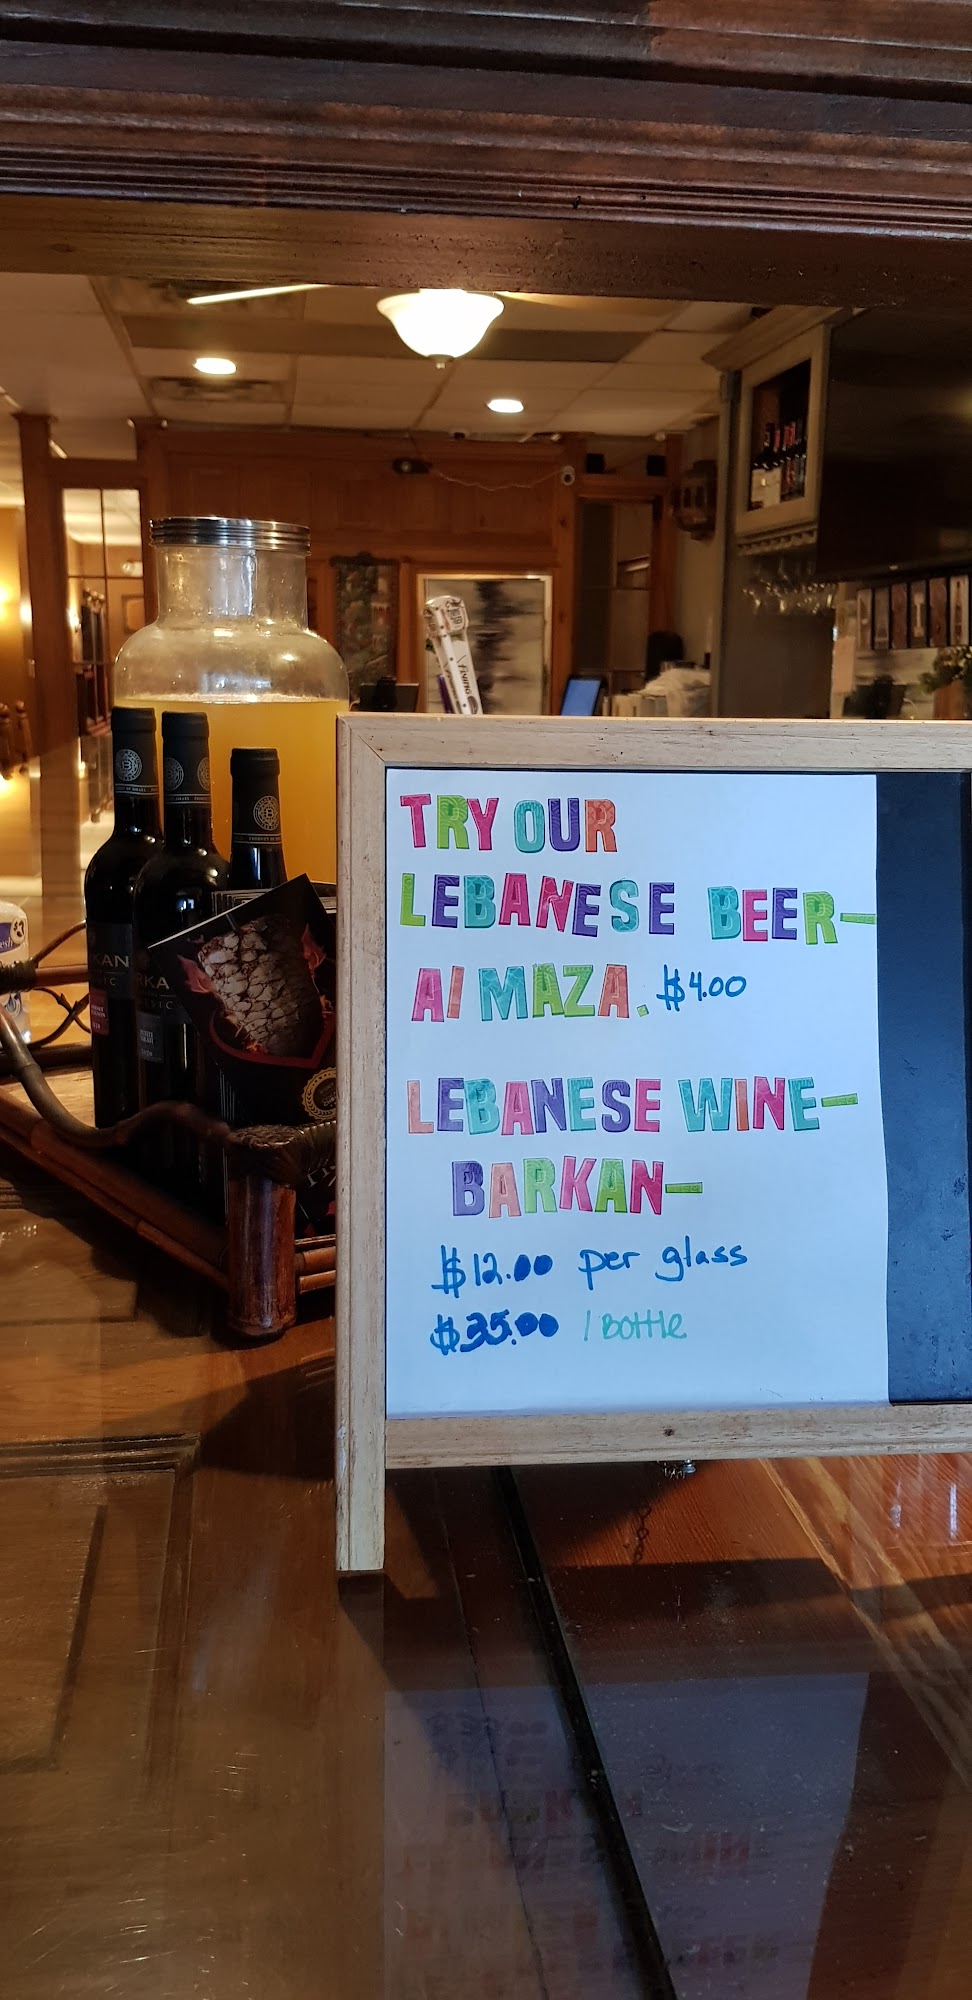 TRY OUR
LEBANESE BEER-
Al MAZA. $4.00
LEBANESE WINE-
BARKAN-
$12.00 per glass
$35.00 / Bottle
KAN
RKA